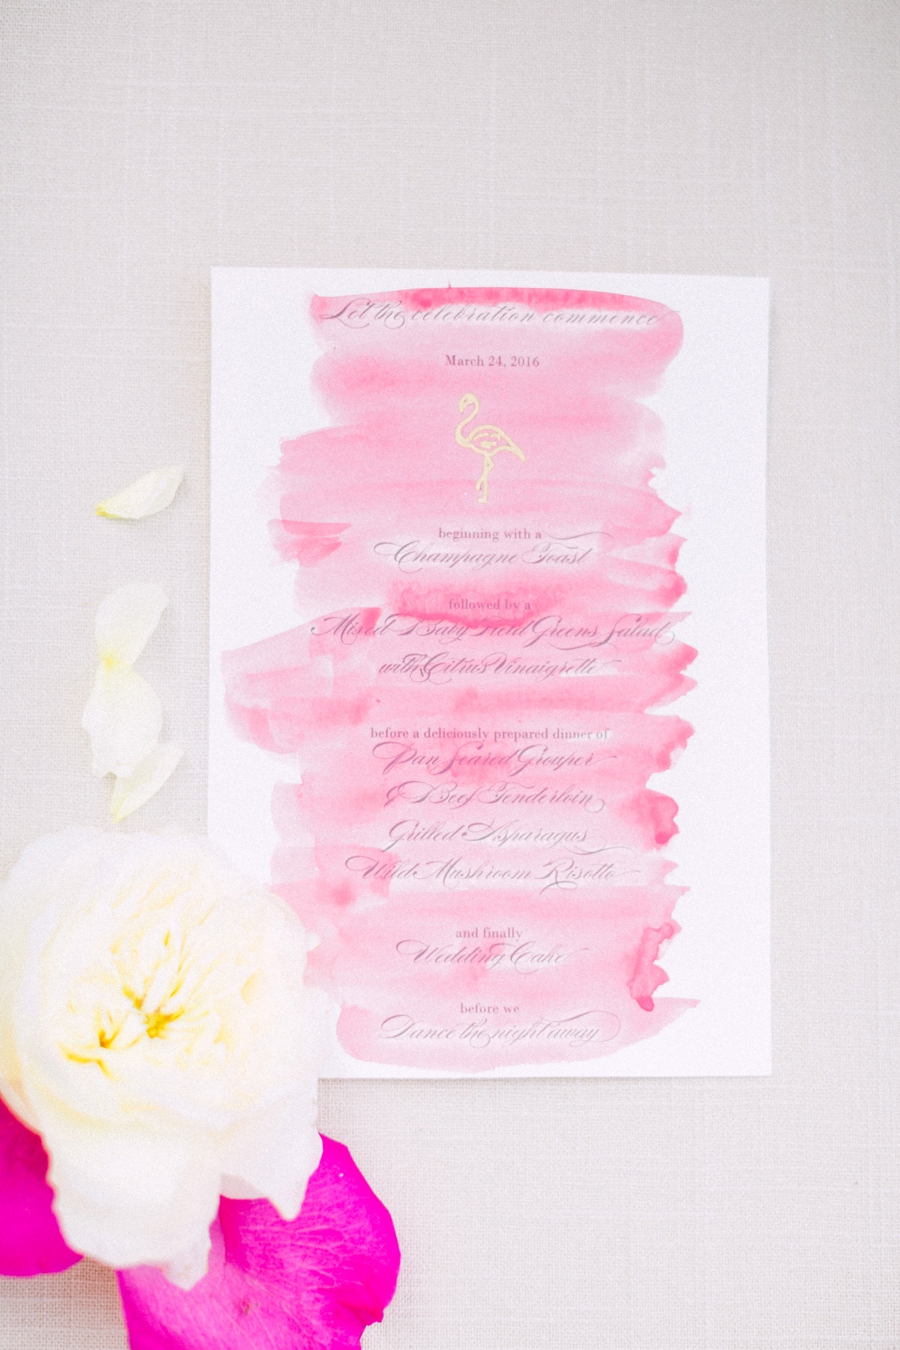 Let the celebration commence
March 24, 2016
beginning with a
Champagne Toast
followed by a
Mixed Baby Field Greens Salad
with Citrus Vinaigrette
before a deliciously prepared dinner of
Pan Seared Grouper
& Beef Tenderloin
Grilled Asparagus
Wild Mushroom Risotto
and finally
Wedding Cake
before we
Dance the night away